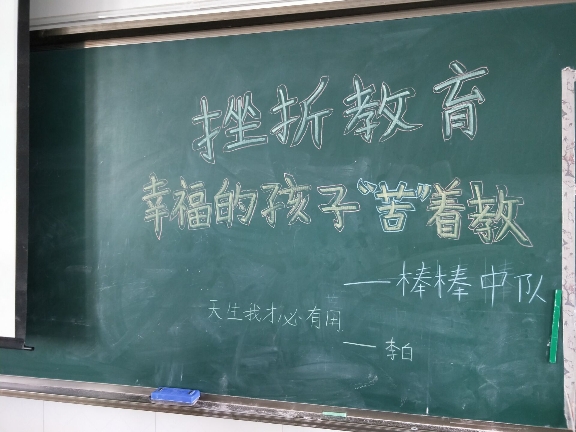 挫折教育
幸福的孩子“苦”着教
——棒棒中队
天生我才必有用
——李白